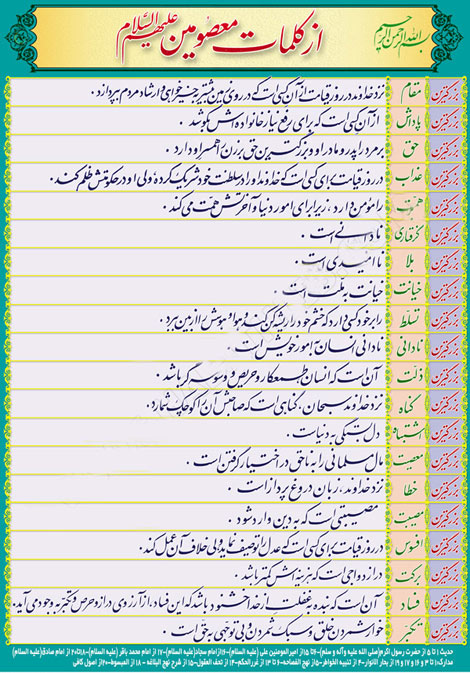 بسم الله الرحمن الرحیم
از کلمات معصومین علیهم السلام
بزرگترین مقام نزد خداوند در روز قیامت از آن کسی است که در روی زمین بیشتر به خیرخواهی و ارشاد مردم بپردازد .
بزرگترین پاداش از آن کسی است که برای رفع نیاز خانواده اش بکوشد .
بزرگترین حق بر مرد را پدر و مادر او و بزرگترین حق بر زن را همسر او دارد .
بزرگترین عذاب در روز قیامت برای کسی است که خداوند او را در سلطنت خود شریک کرده ولی او در حکومتش ظلم کند .
بزرگترین همت را مؤمن دارد ، زیرا برای امور دنیا و آخرتش همت می کند .
بزرگترین گرفتاری نادانی است .
بزرگترین بلا ناامیدی است .
بزرگترین خیانت خیانت به ملت است .
بزرگترین تسلط را بر خود کسی دارد که خشم خود را ریشه کن کند و هوا و هوسش را از بین ببرد .
بزرگترین نادانی نادانی انسان به امور خویش است .
بزرگترین ذلت آن است که انسان طمعکار و حریص و وسوسه گر باشد .
بزرگترین گناه نزد خداوند سبحان ، گناهی است که صاحبش آن را کوچک شمارد .
بزرگترین اشتباه دل بستگی به دنیاست .
بزرگترین معصیت مال مسلمانی را به ناحق در اختیار گرفتن است .
بزرگترین خطا نزد خداوند ، زبان دروغ پرداز است .
بزرگترین مصیبت مصیبتی است که به دین وارد شود .
بزرگترین افسوس در روز قیامت برای کسی است که عدل را توصیف نماید ولی خلاف آن عمل کند .
بزرگترین برکت در ازدواجی است که هزینه اش کمتر باشد .
بزرگترین فساد آن است که بنده به غفلت از خدا خشنود باشد که این فساد ، از آرزوی دراز و حرص و تکبر به وجود می آید .
بزرگترین تکبر خوار شمردن خلق و سبک شمردن و بی توجهی به حق است .
حدیث ۱ تا ۵ از حضرت رسول اکرم(صلی الله علیه وآله و سلم)-۶تا ۱۵از امیرالمومنین علی (علیه السلام)-۱۶از امام سجاد(علیه السلام)-۱۷ از امام محمد باقر (علیه السلام)-۱۸تا۲۰ از امام صادق(علیه السلام)